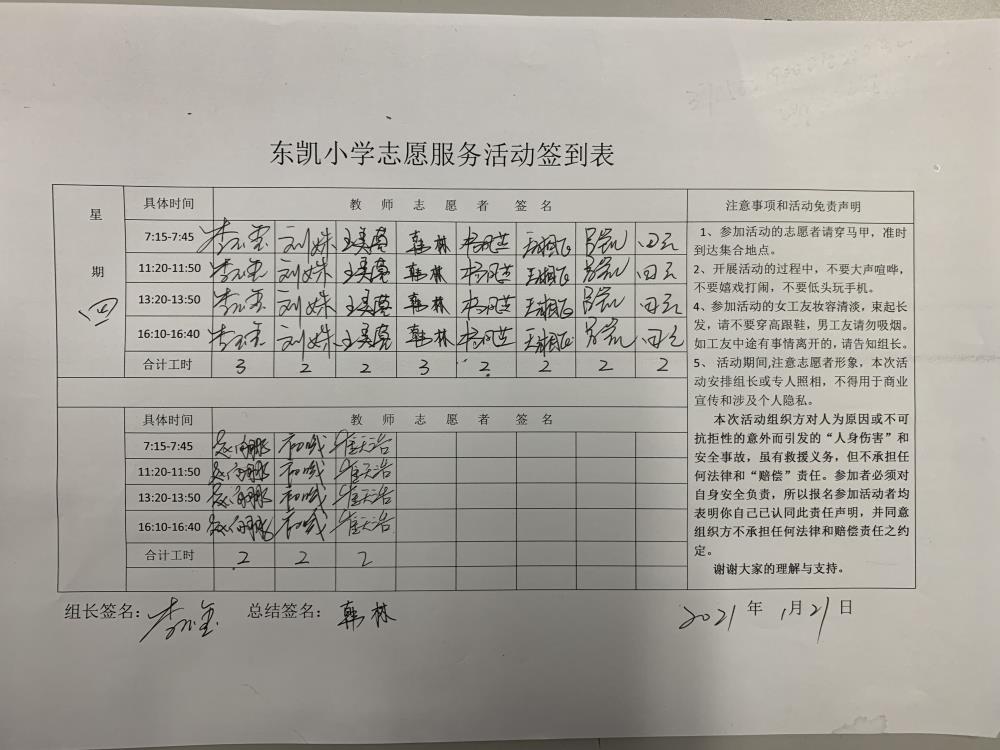 东凯小学志愿服务活动签到表
星期(四)
具体时间 教师志愿者签名
7:15-7:45 刘姝 韩林 田云
11:20-11:50 刘姝 韩林 田云
13:20-13:50 刘姝 韩林 田云
16:10-16:40 刘姝 韩林 田云
合计工时 3 2 2 3 2 2 2 2
具体时间 教师志愿者签名
7:15-7:45
11:20-11:50
13:20-13:50
16:10-16:40
合计工时 2 2 2
注意事项和活动免责声明
1、参加活动的志愿者请穿马甲,准时
到达集合地点。
2、开展活动的过程中,不要大声喧哗,
不要嬉戏打闹,不要低头玩手机。
4、参加活动的女工友妆容清淡,束起长
发,请不要穿高跟鞋,男工友请勿吸烟。
如工友中途有事情离开的,请告知组长。
5、活动期间,注意志愿者形象,本次活
动安排组长或专人照相,不得用于商业
宣传和涉及个人隐私。
本次活动组织方对人为原因或不可
抗拒性的意外而引发的“人身伤害”和
安全事故,虽有救援义务,但不承担任
何法律和“赔偿”责任。参加者必须对
自身安全负责,所以报名参加活动者均
表明你自己已认同此责任声明,并同意
组织方不承担任何法律和赔偿责任之约
定。
谢谢大家的理解与支持。
组长签名: 总结签名:韩林 2021年1月21日